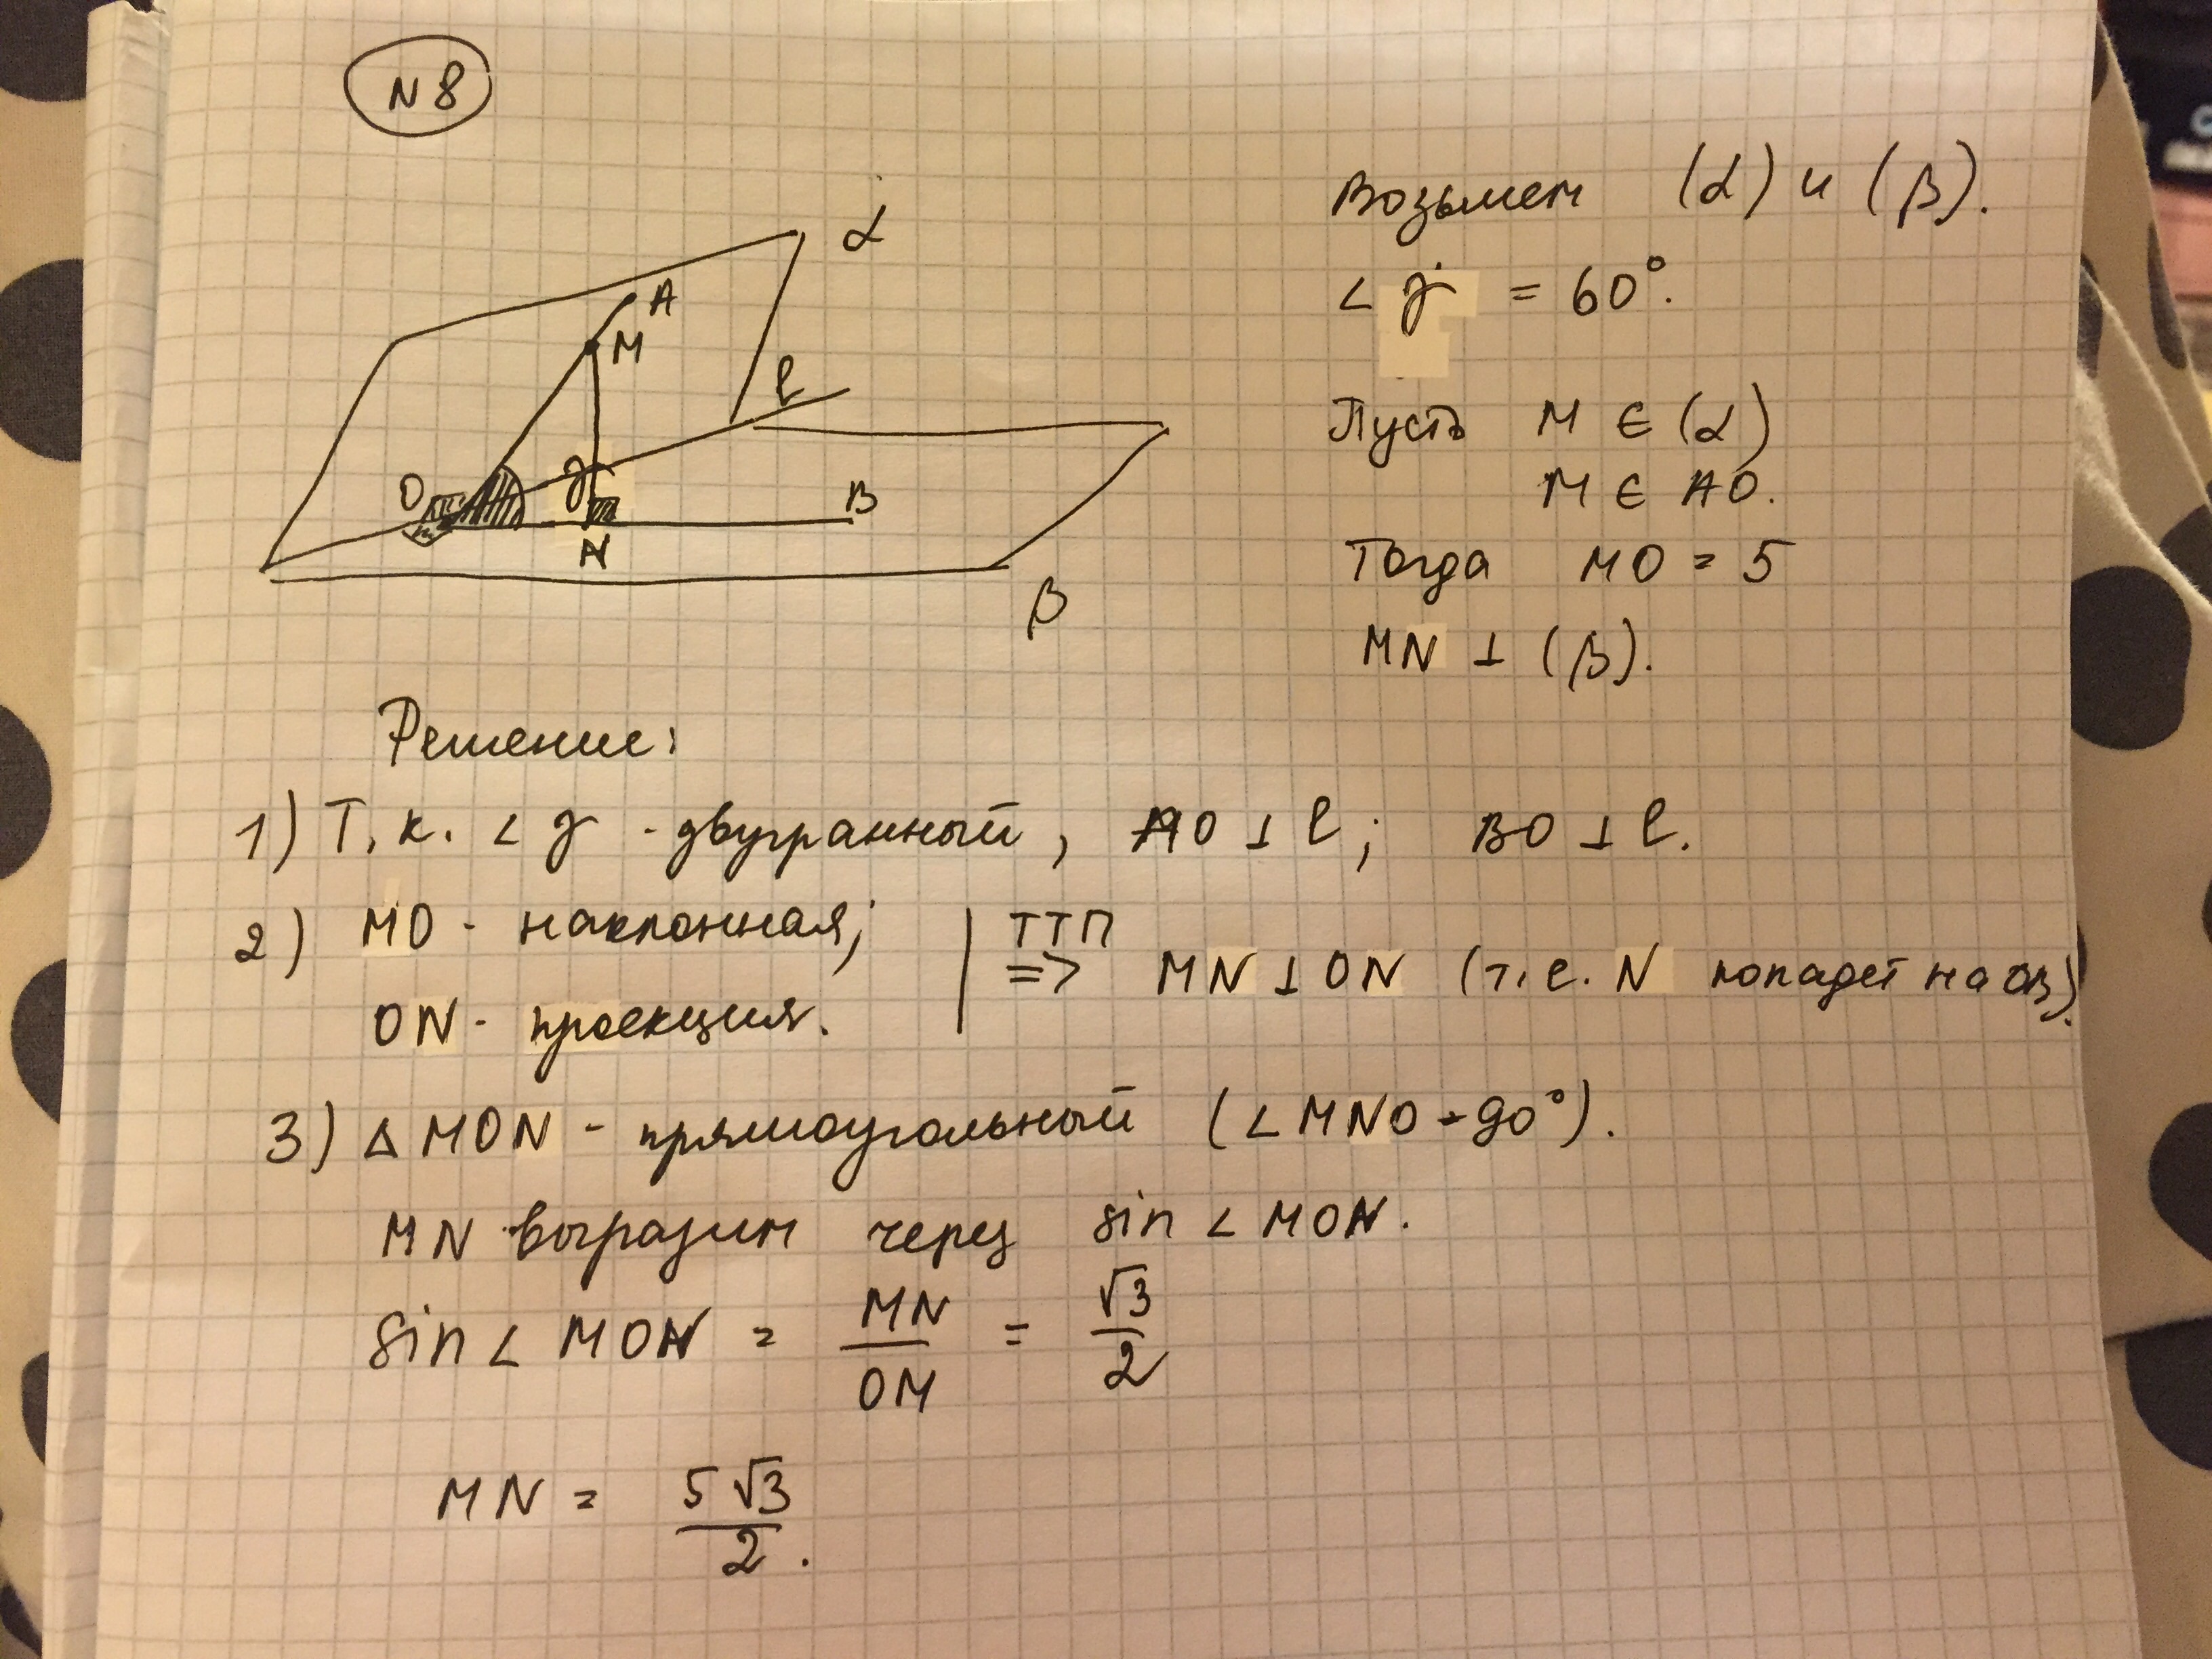 N 8
α
A
M
l
O
γ
B
N
β
Возьмем (α) и (β).
∠ γ = 60°.
Пусть M ∈ (α)
M ∈ AO.
Тогда MO = 5
MN ⊥ (β).
Решение:
1) Т.к. ∠ γ - двугранный, AO ⊥ l; BO ⊥ l.
2) MO - наклонная; | ТТП
=> MN ⊥ ON (т.е. N попадет на OB).
ON - проекция.
3) Δ MON - прямоугольный (∠ MNO = 90°).
MN выразим через sin ∠ MON.
sin ∠ MON = MN/OM = √3/2
MN = 5√3/2.